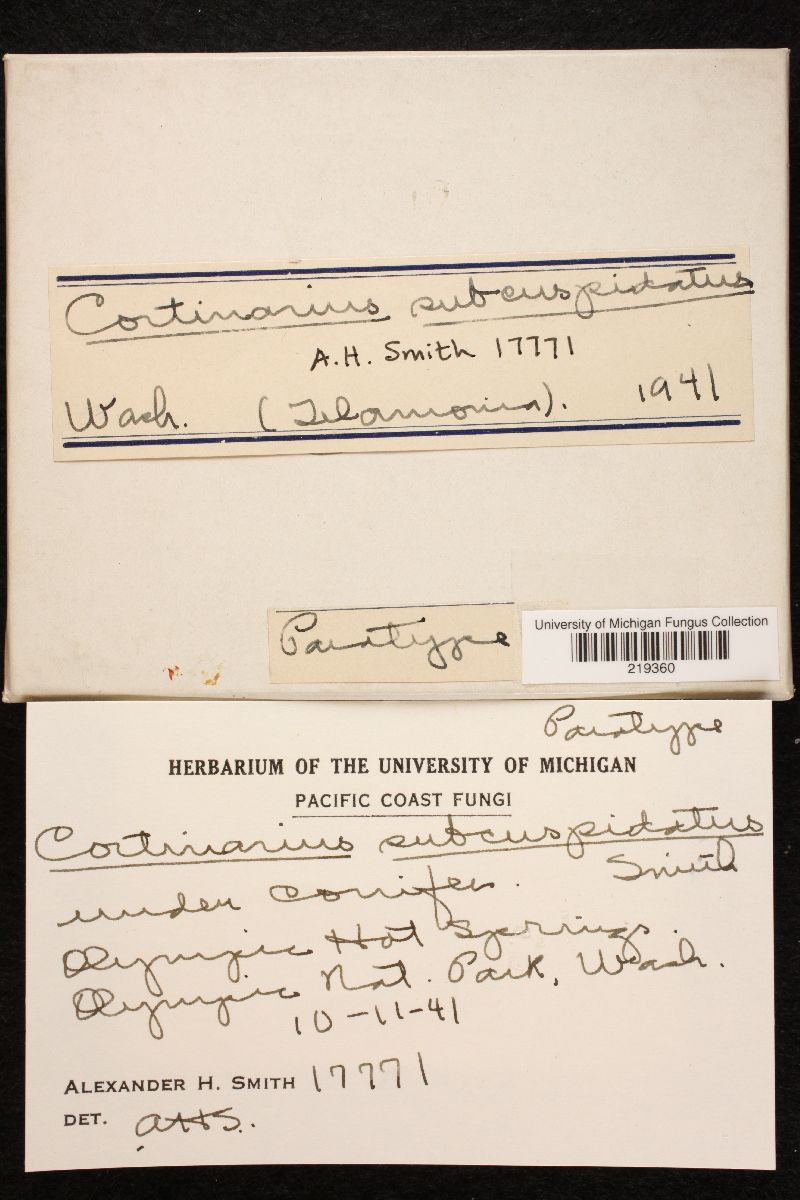 Cortinarius subcuspidatus
A.H. Smith 17771
Wash. (Telamonia). 1941
Paratype
University of Michigan Fungus Collection
219360
Paratype
HERBARIUM OF THE UNIVERSITY OF MICHIGAN
PACIFIC COAST FUNGI
Cortinarius subcuspidatus
Smith
under conifer.
Olympic Hot Springs.
Olympic Nat. Park, Wash.
10-11-41
ALEXANDER H. SMITH 17771
DET. AHS.